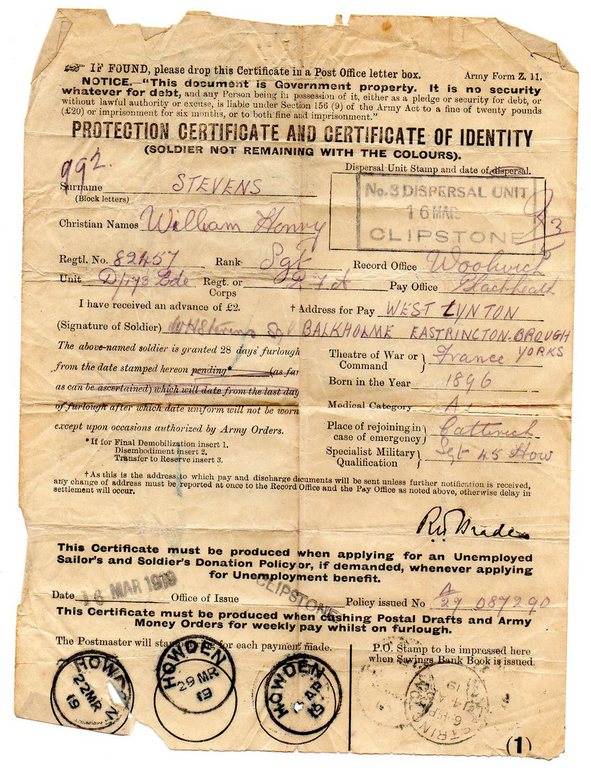 IF FOUND, please drop this Certificate in a Post Office letter box. Army Form Z. 11.
NOTICE.—"This document is Government property. It is no security
whatever for debt, and any Person being in possession of it, either as a pledge or security for debt, or
without lawful authority or excuse, is liable under Section 156 (9) of the Army Act to a fine of twenty pounds
(£20) or imprisonment for six months, or to both fine and imprisonment."
PROTECTION CERTIFICATE AND CERTIFICATE OF IDENTITY
(SOLDIER NOT REMAINING WITH THE COLOURS).
992.
Dispersal Unit Stamp and date of dispersal.
Surname STEVENS
(Block letters)
No. 3 DISPERSAL UNIT
16 MAR
CLIPSTONE
Christian Names William Henry
Regtl. No. 82457 Rank Sgt Record Office Woolwich
Unit D/173 Bde Regt. or Corps R F A Pay Office Blackheath
I have received an advance of £2. † Address for Pay WEST LYNTON
(Signature of Soldier) WHStevens Sgt BALKHOLME EASTRINGTON. BROUGH
YORKS
The above-named soldier is granted 28 days' furlough
from the date stamped hereon pending* (as far
as can be ascertained) which will date from the last day
of furlough after which date uniform will not be worn
except upon occasions authorized by Army Orders.
*If for Final Demobilization insert 1.
Disembodiment insert 2.
Transfer to Reserve insert 3.
Theatre of War or Command France
Born in the Year 1896
Medical Category A
Place of rejoining in case of emergency Catterick
Specialist Military Qualification Sgt 4.5 How
†As this is the address to which pay and discharge documents will be sent unless further notification is received,
any change of address must be reported at once to the Record Office and the Pay Office as noted above, otherwise delay in
settlement will occur.
This Certificate must be produced when applying for an Unemployed
Sailor's and Soldier's Donation Policy or, if demanded, whenever applying
for Unemployment benefit.
Date 16 MAR 1919 Office of Issue CLIPSTONE Policy issued No. A/29 087290
This Certificate must be produced when cashing Postal Drafts and Army
Money Orders for weekly pay whilst on furlough.
The Postmaster will stamp for each payment made.
P.O. Stamp to be impressed here
when Savings Bank Book is issued.
HOWDEN
22 MR
19
HOWDEN
29 MR
19
HOWDEN
AP
19
(1)